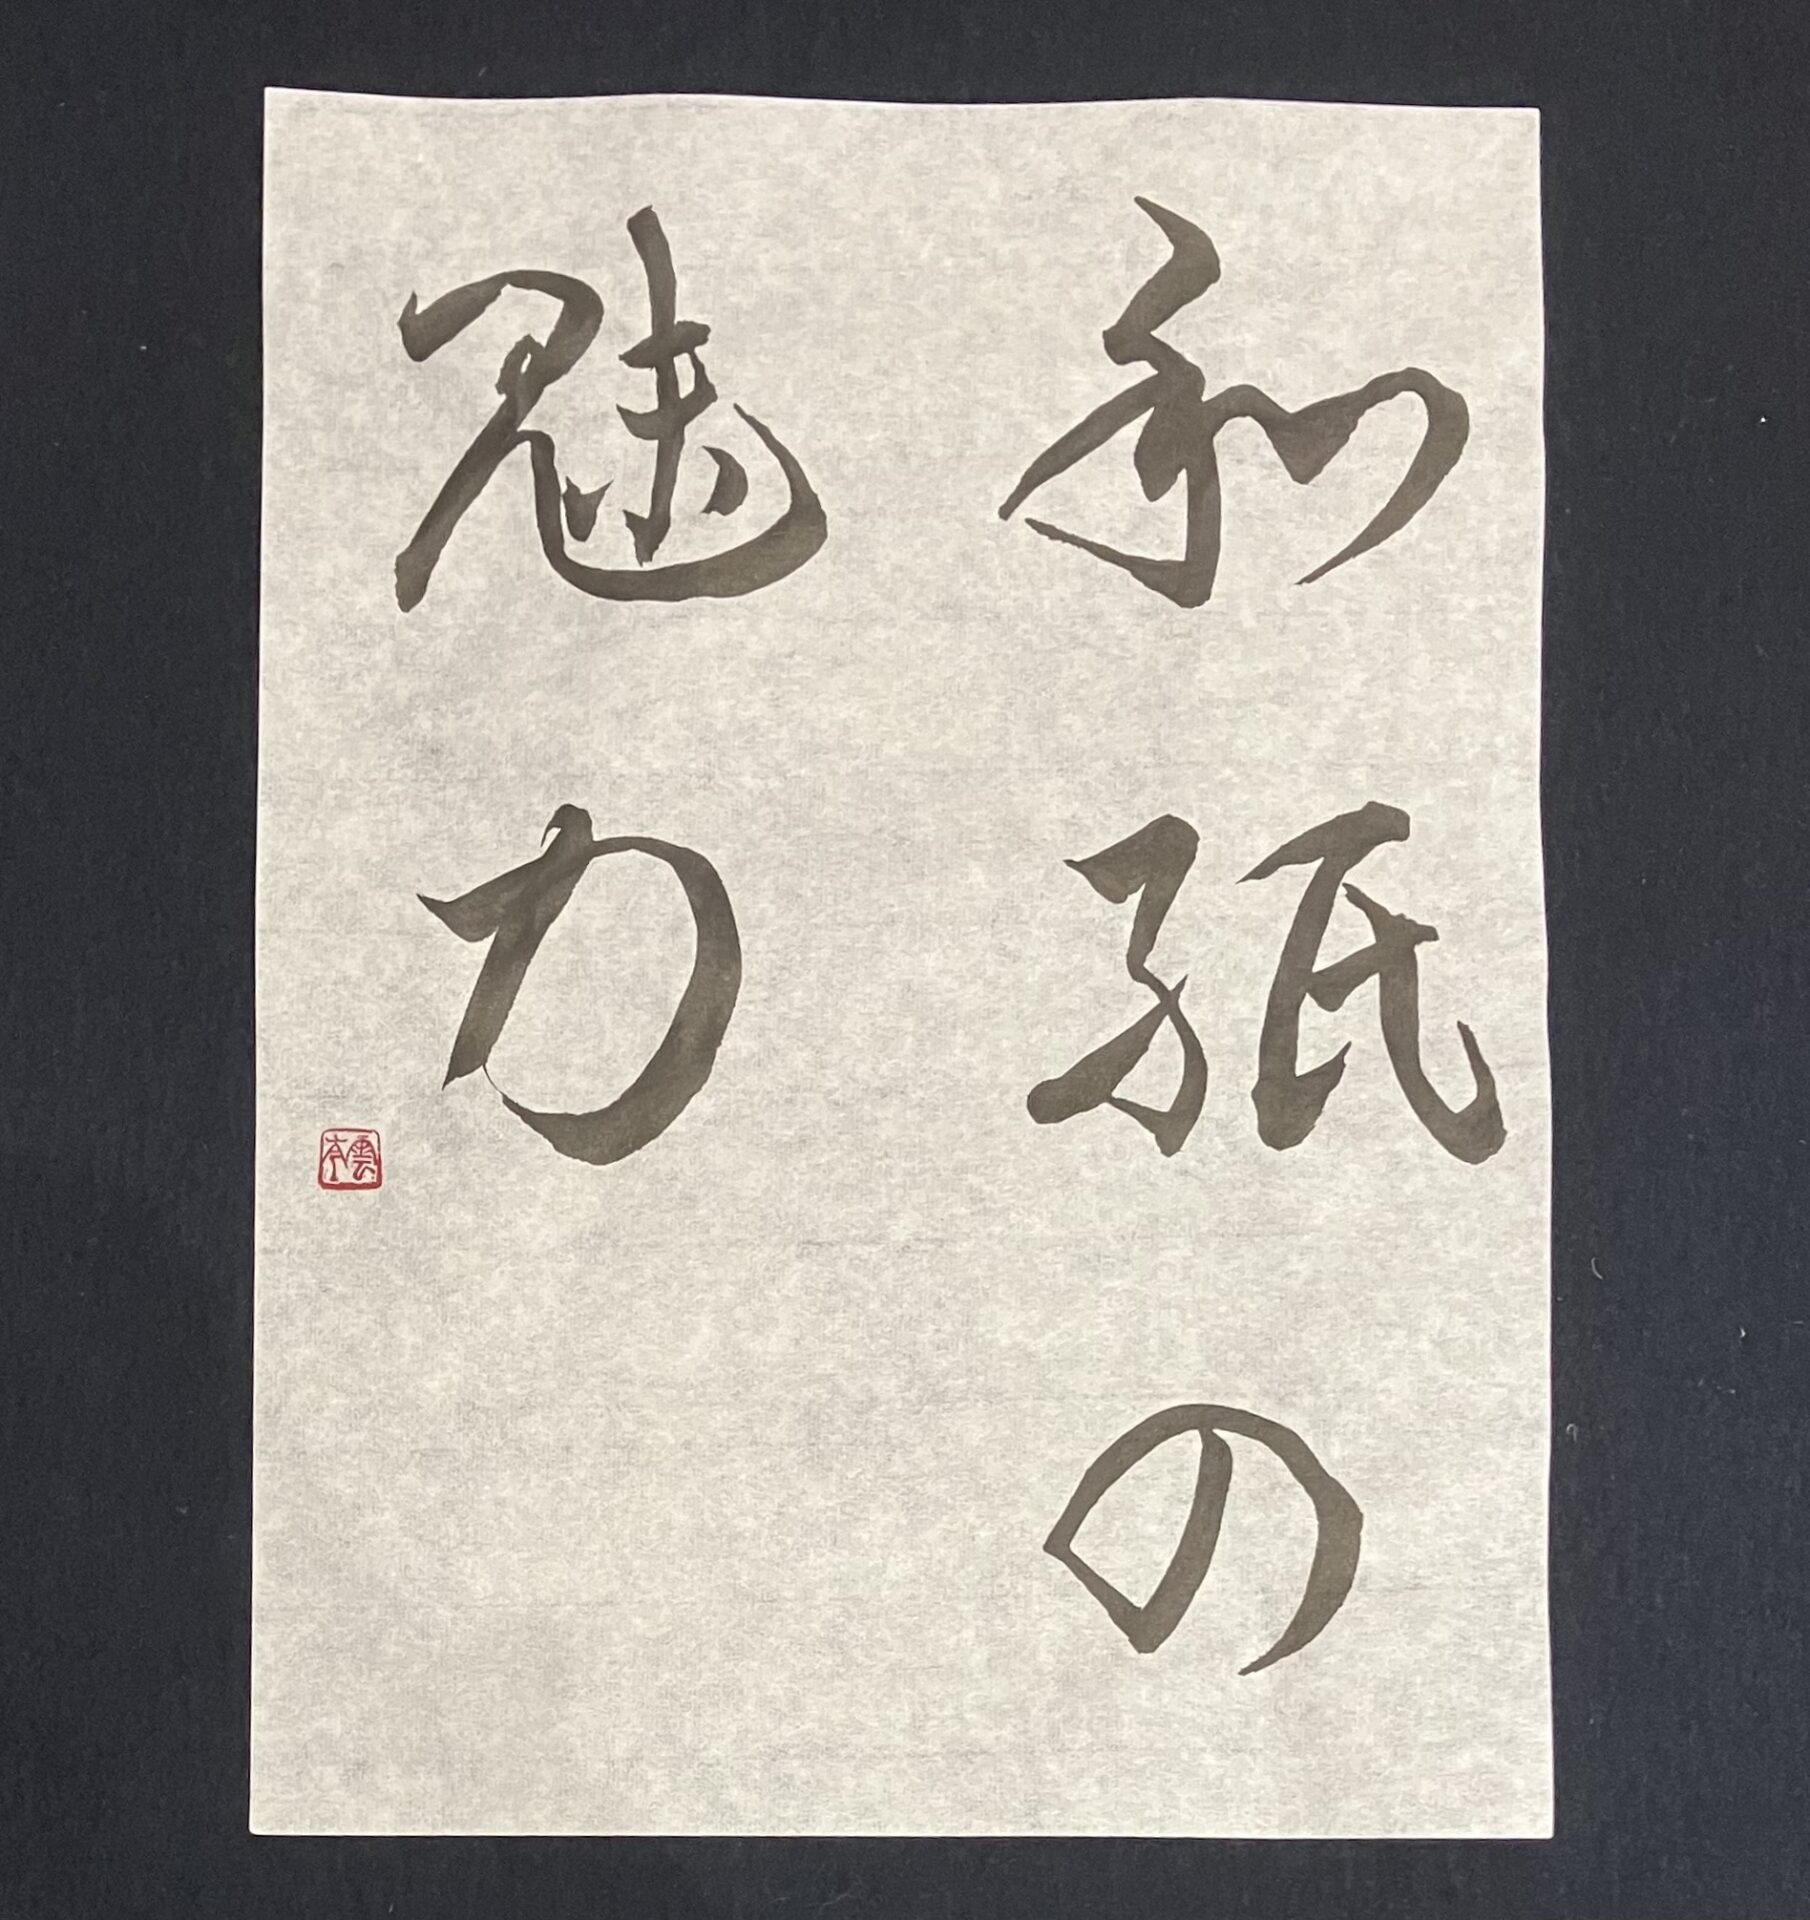 和紙の
魅力